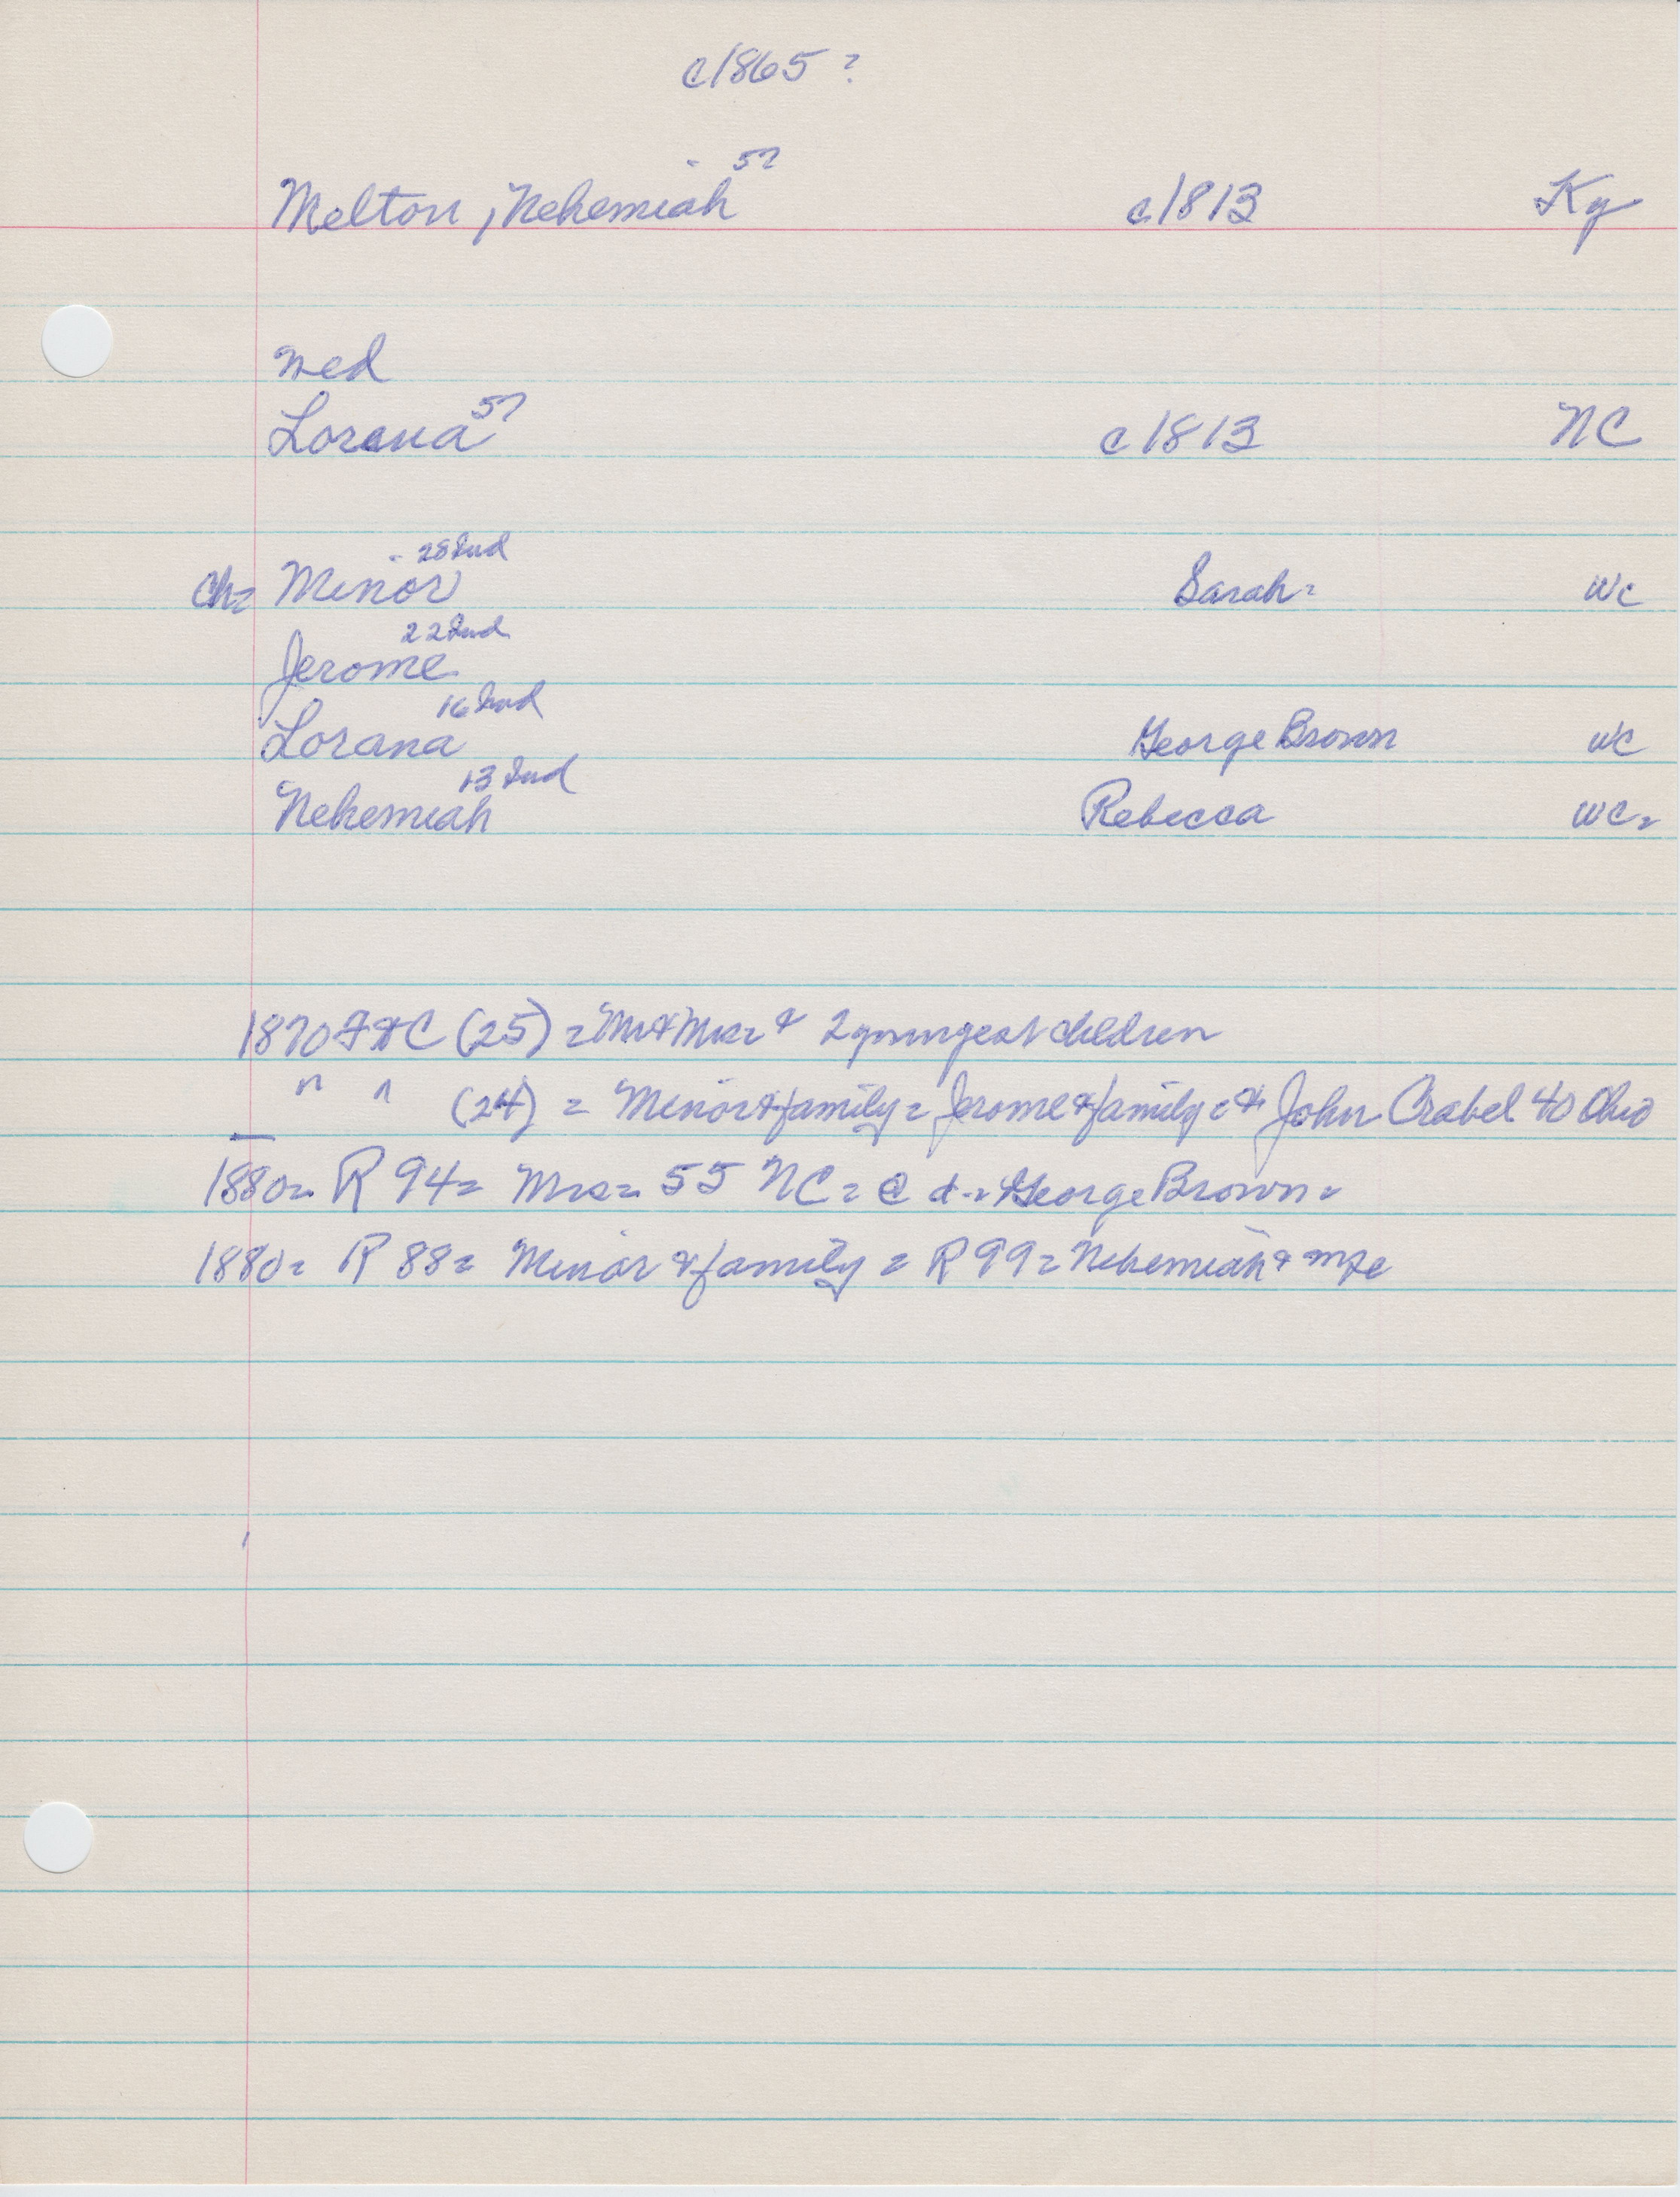 c1865 ?
57
Melton, Nehemiah c1813 Ky
med
57
Lorana c1813 NC
28 Ind
Ch= Minor Sarah= WC
22 Ind
Jerome
16 Ind
Lorana George Brown WC
13 Ind
Nehemiah Rebecca WC=
1870 (25) = Mr & Mrs = & 2 youngest children
" " (24) = Minor & family = Jerome & family = & John Crabel 40 Ohio
1880= R 94= Mrs= 55 NC= @ d.= George Brown=
1880= R 88= Minor & family = R 99= Nehemiah &